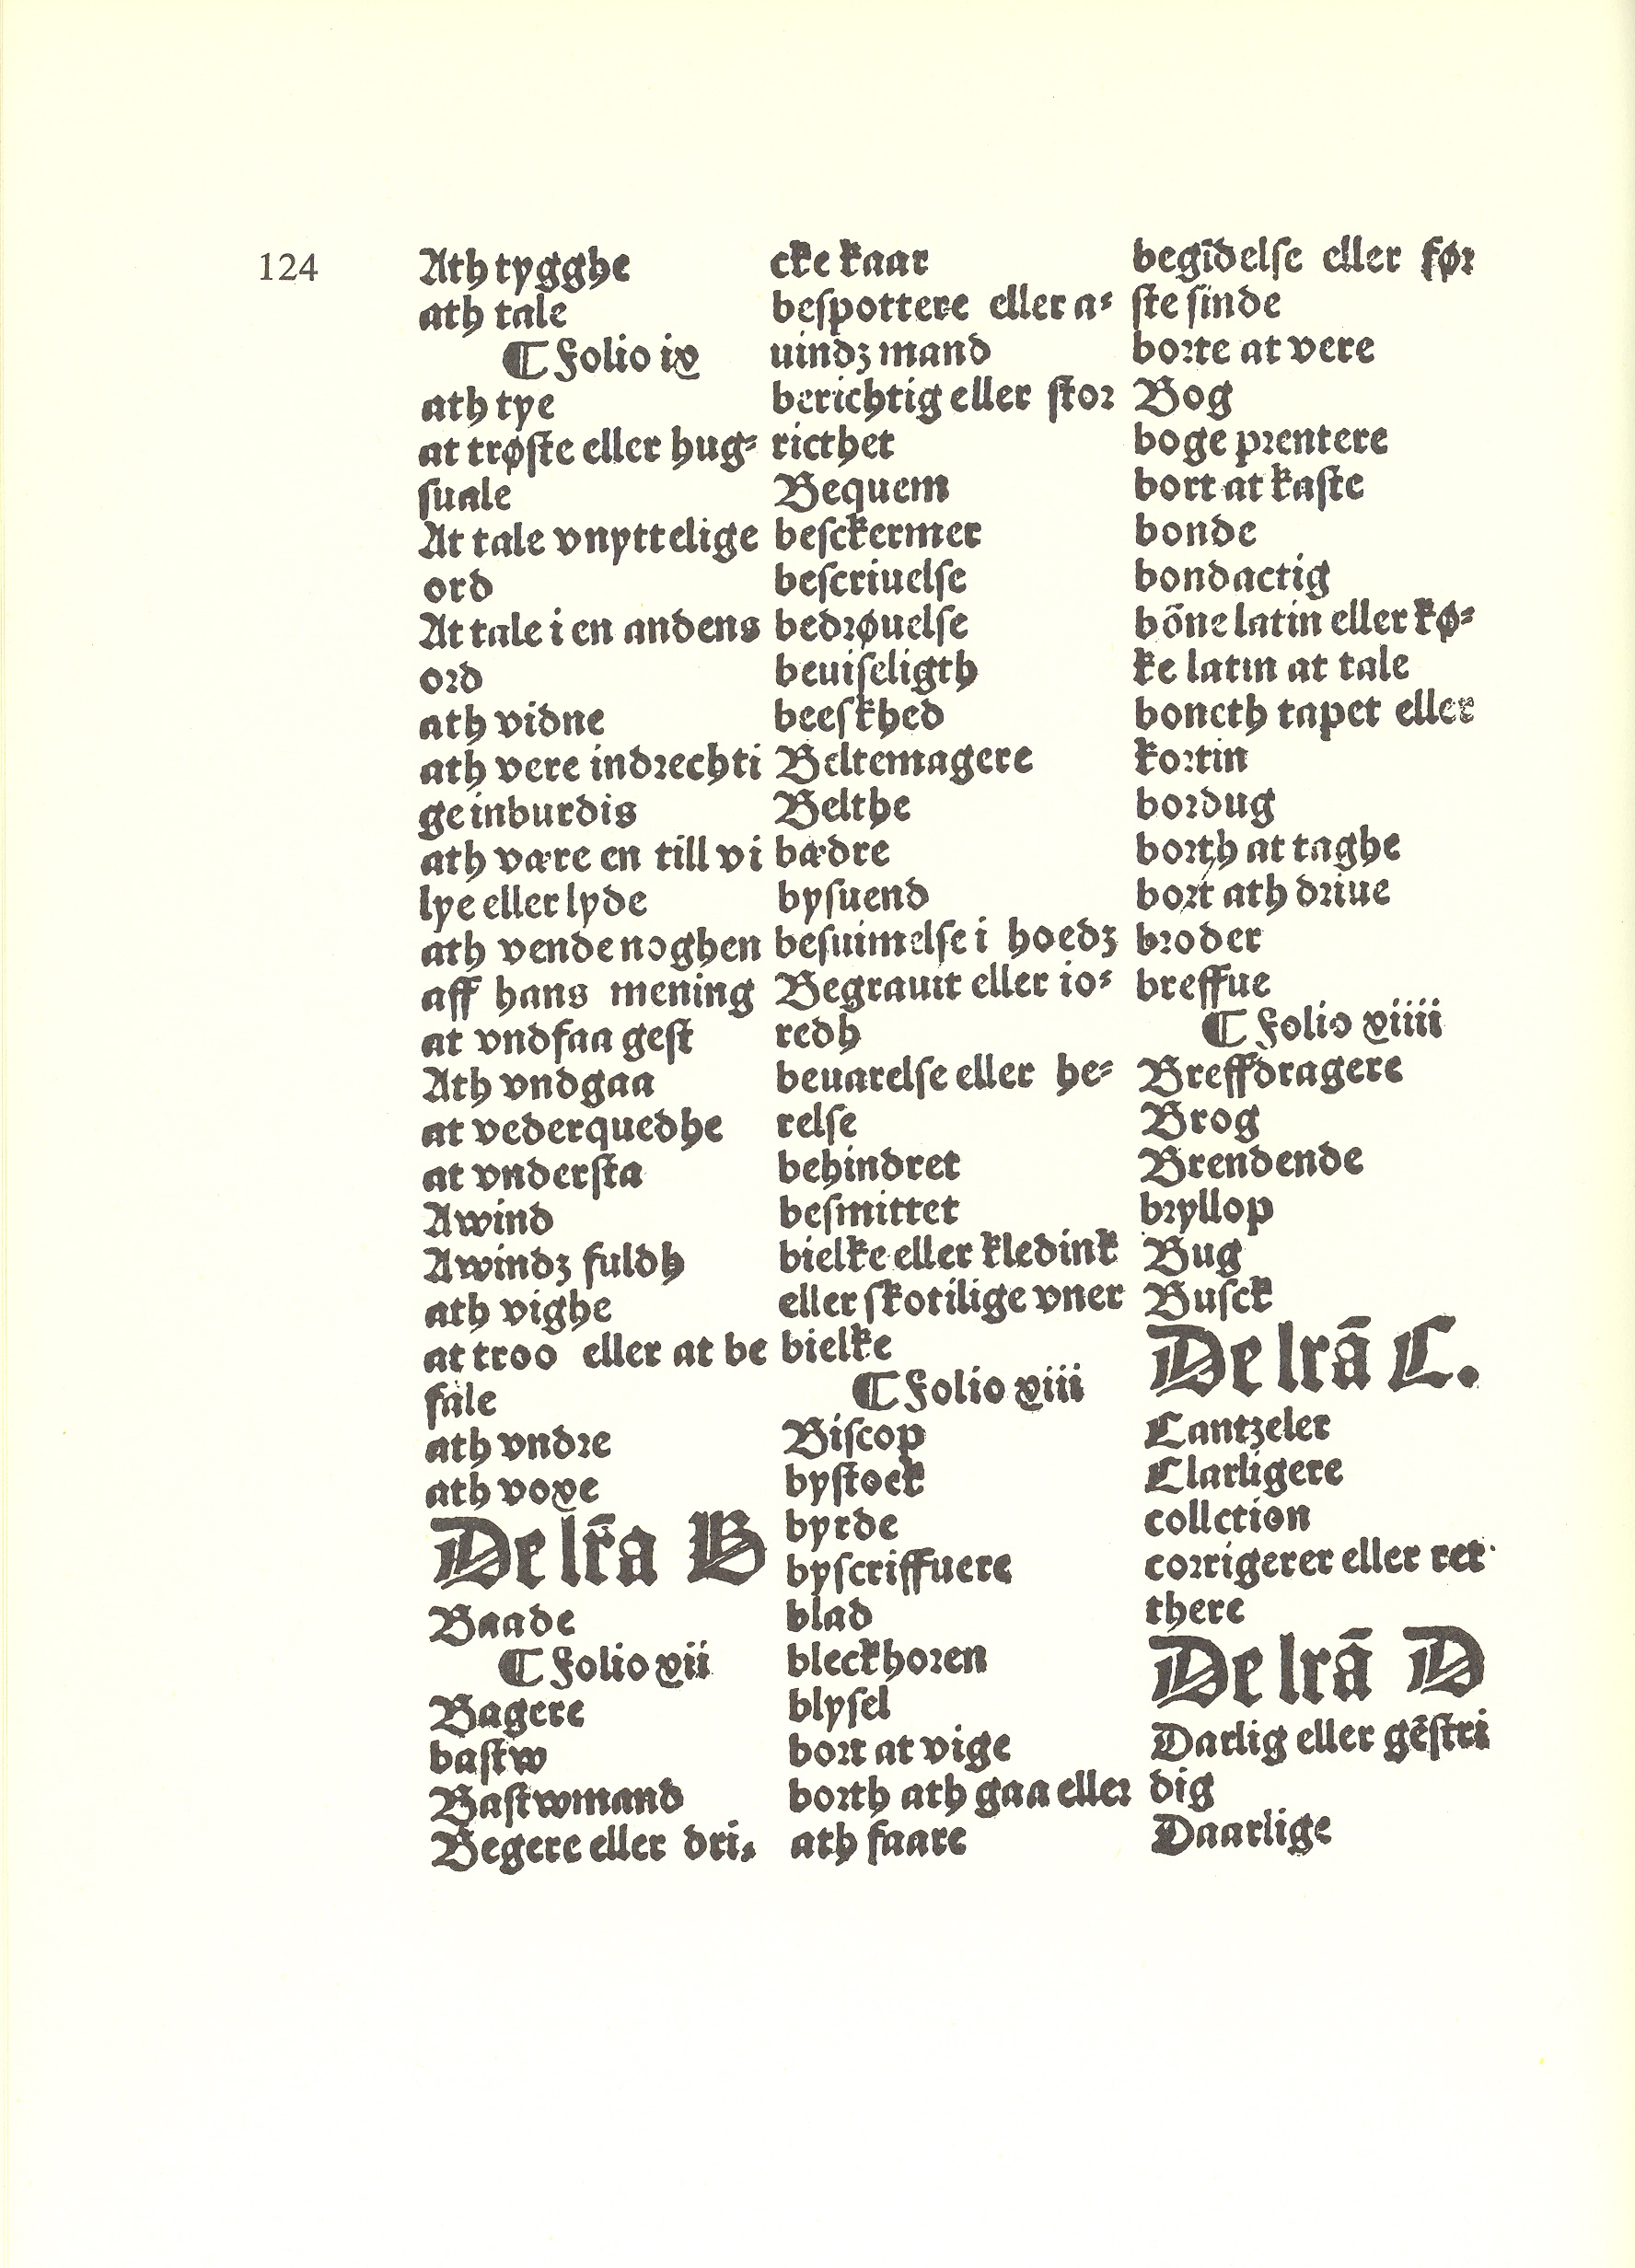 124
Ath tygghe
ath tale
⸿ Folio ix
ath tye
at trøste eller hug⸗
suale
At tale vnyttelige
ord
At tale i en andens
ord
ath vidne
ath vere indrechti
ge inburdis
ath være en till vi
lye eller lyde
ath vende noghen
aff hans mening
at vndfaa gest
Ath vndgaa
at vederquedhe
at vndersta
Awind
Awindz fuldh
ath vighe
at troo eller at be
fale
ath vndre
ath voxe
De lr̄a B
Baade
⸿ Folio xii
Bagere
bastw
Bastwmand
Begere eller dri⸗
cke kaar
bespottere eller a⸗
uindz mand
berichtig eller stor
ricthet
Bequem
besckermer
bescriuelse
bedrøuelse
beuiseligth
beeskhed
Beltemagere
Belthe
bædre
bysuend
besuimelse i hoedz
Begrauit eller io⸗
redh
beuarelse eller he⸗
relse
behindret
besmittet
bielke eller kledink
eller skotilige vner
bielke
⸿ Folio xiii
Biscop
bystock
byrde
byscriffuere
blad
bleckhoren
blysel
bort at vige
borth ath gaa eller
ath faare
begīdelse eller før
ste sinde
borte at vere
Bog
boge prentere
bort at kaste
bonde
bondactig
bōne latin eller kø⸗
ke latin at tale
boncth tapet eller
kortin
bordug
borth at taghe
bort ath driue
broder
breffue
⸿ Folio xiiii
Breffdragere
Brog
Brendende
bryllop
Bug
Busck
De lrā C.
Cantzeler
Clarligere
collction
corrigerer eller ret
there
De lrā D
Darlig eller gēstri
dig
Daarlige